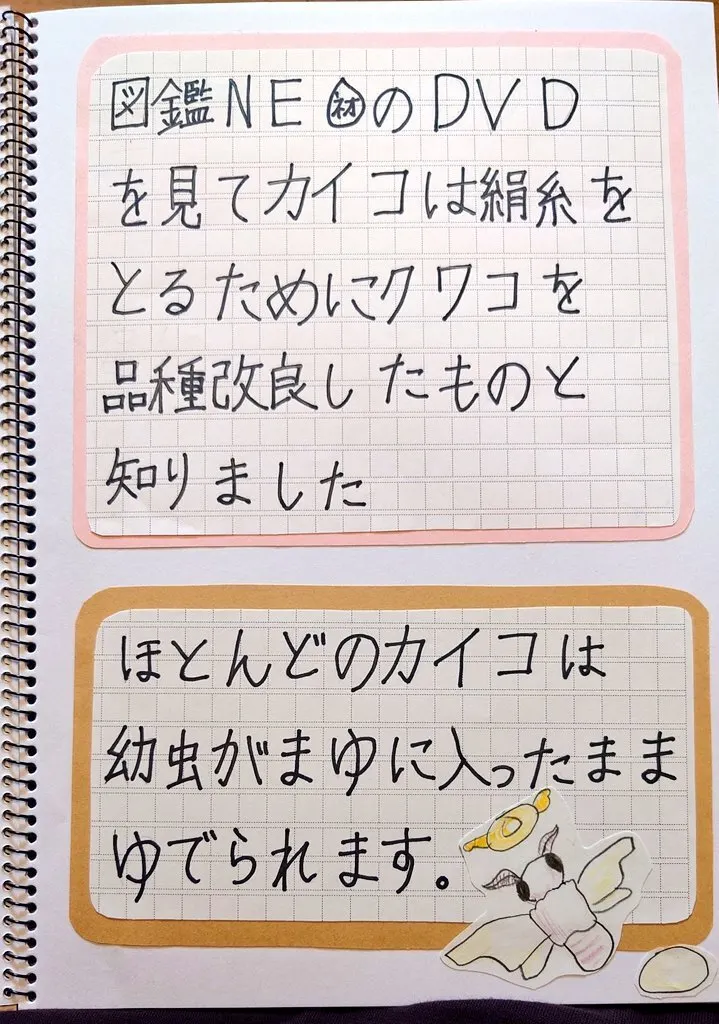 図鑑NEネオのDVD
を見てカイコは絹糸を
とるためにクワコを
品種改良したものと
知りました
ほとんどのカイコは
幼虫がまゆに入ったまま
ゆでられます。